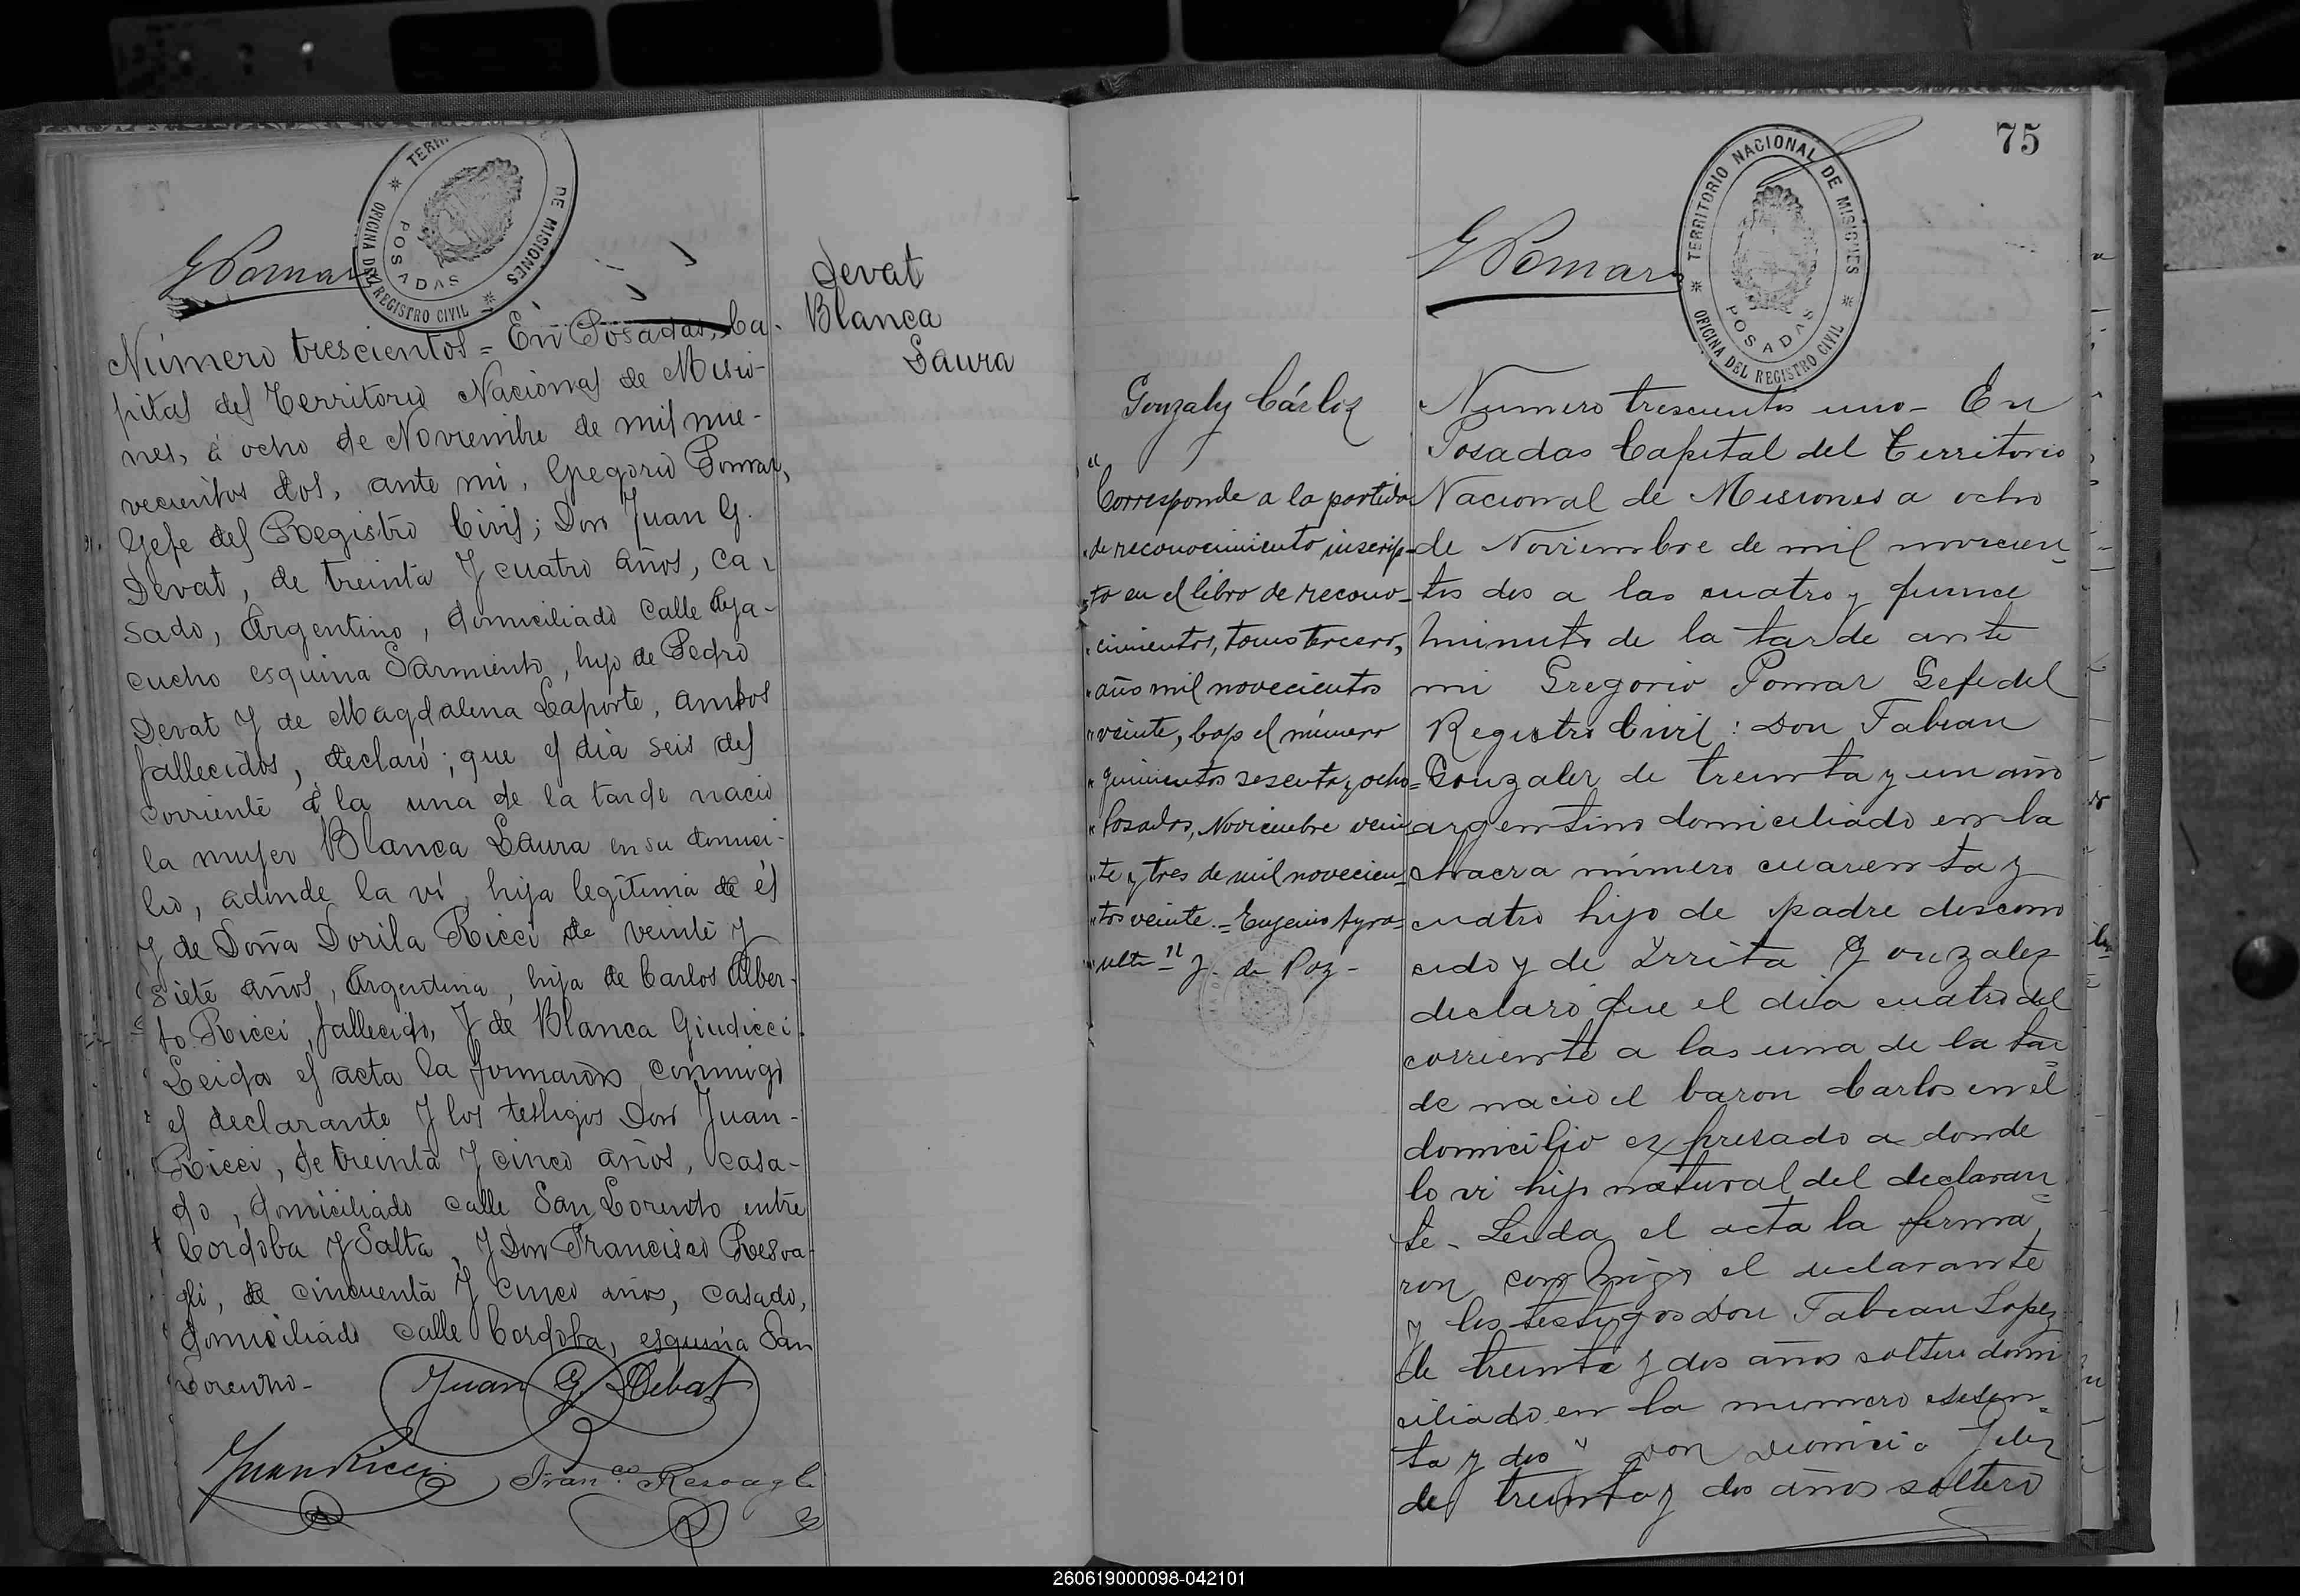 TERRI
DE MISIONES
OFICINA DEL REGISTRO CIVIL
POSADAS
G Pomar
Devat
Blanca
Laura
Número trescientos = En Posadas, Ca-
pital del Territorio Nacional de Misio-
nes, á ocho de Noviembre de mil nue-
vecientos dos, ante mi, Gregorio Pomar,
Gefe del Registro Civil; Don Juan G.
Devat, de treinta y cuatro años, ca-
sado, Argentino, domiciliado calle Aya-
cucho esquina Sarmiento, hijo de Pedro
Devat y de Magdalena Laporte, ambos
fallecidos, declaró; que el dia seis del
corriente á la una de la tarde nació
la mujer Blanca Laura en su domici-
lio, adonde la ví, hija legítima de él
y de Doña Dorila Ricci de veinte y
siete años, Argentina, hija de Carlos Alber-
to Ricci, fallecido, y de Blanca Giudicci.
Leida el acta la firmaron conmigo
el declarante y los testigos Don Juan
Ricci, de treinta y cinco años, casa-
do, domiciliado calle San Lorenzo entre
Cordoba y Salta, y Don Francisco Resoa-
gli, de cincuenta y cinco años, casado,
domiciliado calle Cordoba, esquina San
Lorenzo-
Juan G. Debat
Juan Ricci
Franco. Resoagli
75
TERRITORIO NACIONAL DE MISIONES
OFICINA DEL REGISTRO CIVIL
POSADAS
G Pomar
Gonzalez Cárlos
"
Corresponde a la partida
"de reconocimiento inscrip-
"to en el libro de recono-
"cimientos, tomo tercero,
"año mil novecientos
"veinte, bajo el número
"quinientos sesenta y ocho=
"Posadas, Noviembre vein
"te y tres de mil novecien-
"tos veinte.= Eugenio Ayra-
"ult=" J. de Paz-
Numero trescientos uno- En
Posadas Capital del Territorio
Nacional de Misiones a ocho
de Noviembre de mil novecien
tos dos a las cuatro y quince
minutos de la tarde ante
mi Gregorio Pomar Gefe del
Registro Civil: Don Fabian
Gonzalez de treinta y un año
argentino domiciliado en la
chacra número cuarenta y
cuatro hijo de padre descono
cido y de Irrita Gonzalez
declaró que el dia cuatro del
corriente a las una de la tar
de nacio el baron Carlos en el
domicilio expresado a donde
lo vi hijo natural del declaran
te- Leida el acta la firma
ron conmigo el declarante
y los testigos Don Fabian Lopez
de treinta y dos años soltero domi
ciliado en la numero sesen-
ta y dos y Don Dionicio
de treinta y dos años soltero
260619000098-042101